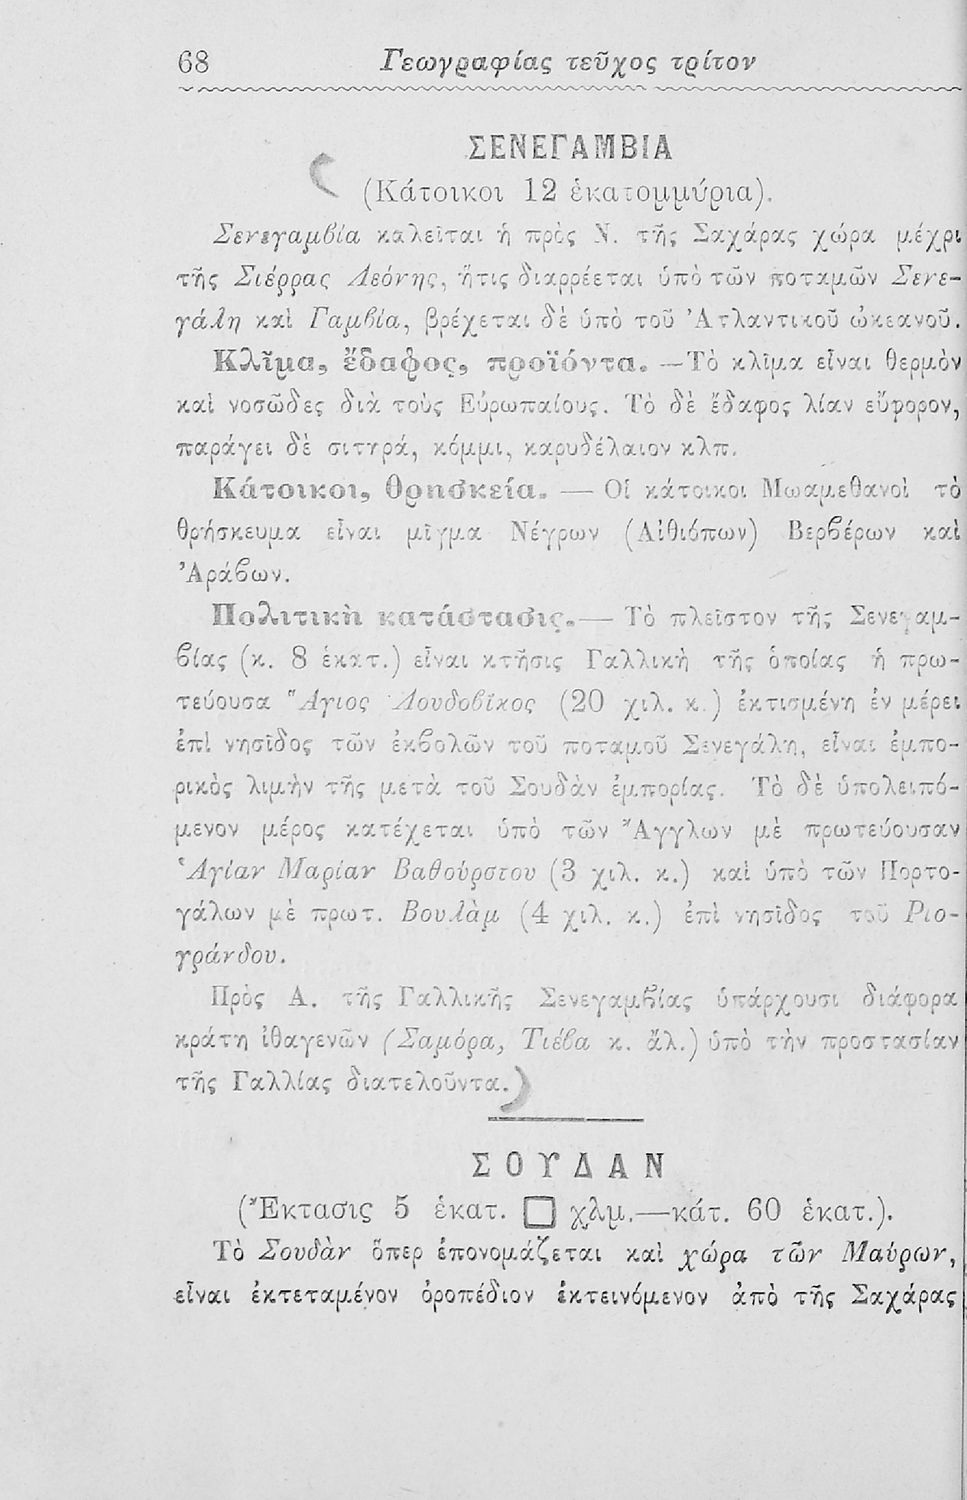 68 Γεωγραφίας τεῦχος τρίτον
ΣΕΝΕΓΑΜΒΙΑ
(Κάτοικοι 12 ἑκατομμύρια).
Σενεγαμβία καλεῖται ἡ πρὸς Ν. τῆς Σαχάρας χώρα μέχρι
τῆς Σιέρρας Λεόνης, ἥτις διαρρέεται ὑπὸ τῶν ποταμῶν Σενε-
γάλη καὶ Γαμβία, βρέχεται δὲ ὑπὸ τοῦ Ἀτλαντικοῦ ὠκεανοῦ.
Κλῖμα, ἔδαφος, προϊόντα. —Τὸ κλῖμα εἶναι θερμὸν
καὶ νοσῶδες διὰ τοὺς Εὐρωπαίους. Τὸ δὲ ἔδαφος λίαν εὔφορον,
παράγει δὲ σιτηρά, κόμμι, καρυδέλαιον κλπ.
Κάτοικοι, θρησκεία. — Οἱ κάτοικοι Μωαμεθανοὶ τὸ
θρήσκευμα εἶναι μῖγμα Νέγρων (Αἰθιόπων) Βερβέρων καὶ
Ἀράβων.
Πολιτικὴ κατάστασις.— Τὸ πλεῖστον τῆς Σενεγαμ-
βίας (κ. 8 ἑκατ.) εἶναι κτῆσις Γαλλικὴ τῆς ὁποίας ἡ πρω-
τεύουσα Ἅγιος Λουδοβῖκος (20 χιλ. κ.) ἐκτισμένη ἐν μέρει
ἐπὶ νησῖδος τῶν ἐκβολῶν τοῦ ποταμοῦ Σενεγάλη, εἶναι ἐμπο-
ρικὸς λιμὴν τῆς μετὰ τοῦ Σουδὰν ἐμπορίας. Τὸ δὲ ὑπολειπό-
μενον μέρος κατέχεται ὑπὸ τῶν Ἄγγλων μὲ πρωτεύουσαν
Ἁγίαν Μαρίαν Βαθούρστου (3 χιλ. κ.) καὶ ὑπὸ τῶν Πορτο-
γάλων μὲ πρωτ. Βουλὰμ (4 χιλ. κ.) ἐπὶ νησῖδος τοῦ Ριο-
γράνδου.
Πρὸς Α. τῆς Γαλλικῆς Σενεγαμβίας ὑπάρχουσι διάφορα
κράτη ἰθαγενῶν (Σαμόρα, Τιέβα κ. ἄλ.) ὑπὸ τὴν προστασίαν
τῆς Γαλλίας διατελοῦντα.
ΣΟΥΔΑΝ
(Ἔκτασις 5 ἑκατ. □ χλμ.—κάτ. 60 ἑκατ.).
Τὸ Σουδὰν ὅπερ ἐπονομάζεται καὶ χώρα τῶν Μαύρων,
εἶναι ἐκτεταμένον ὀροπέδιον ἐκτεινόμενον ἀπὸ τῆς Σαχάρας